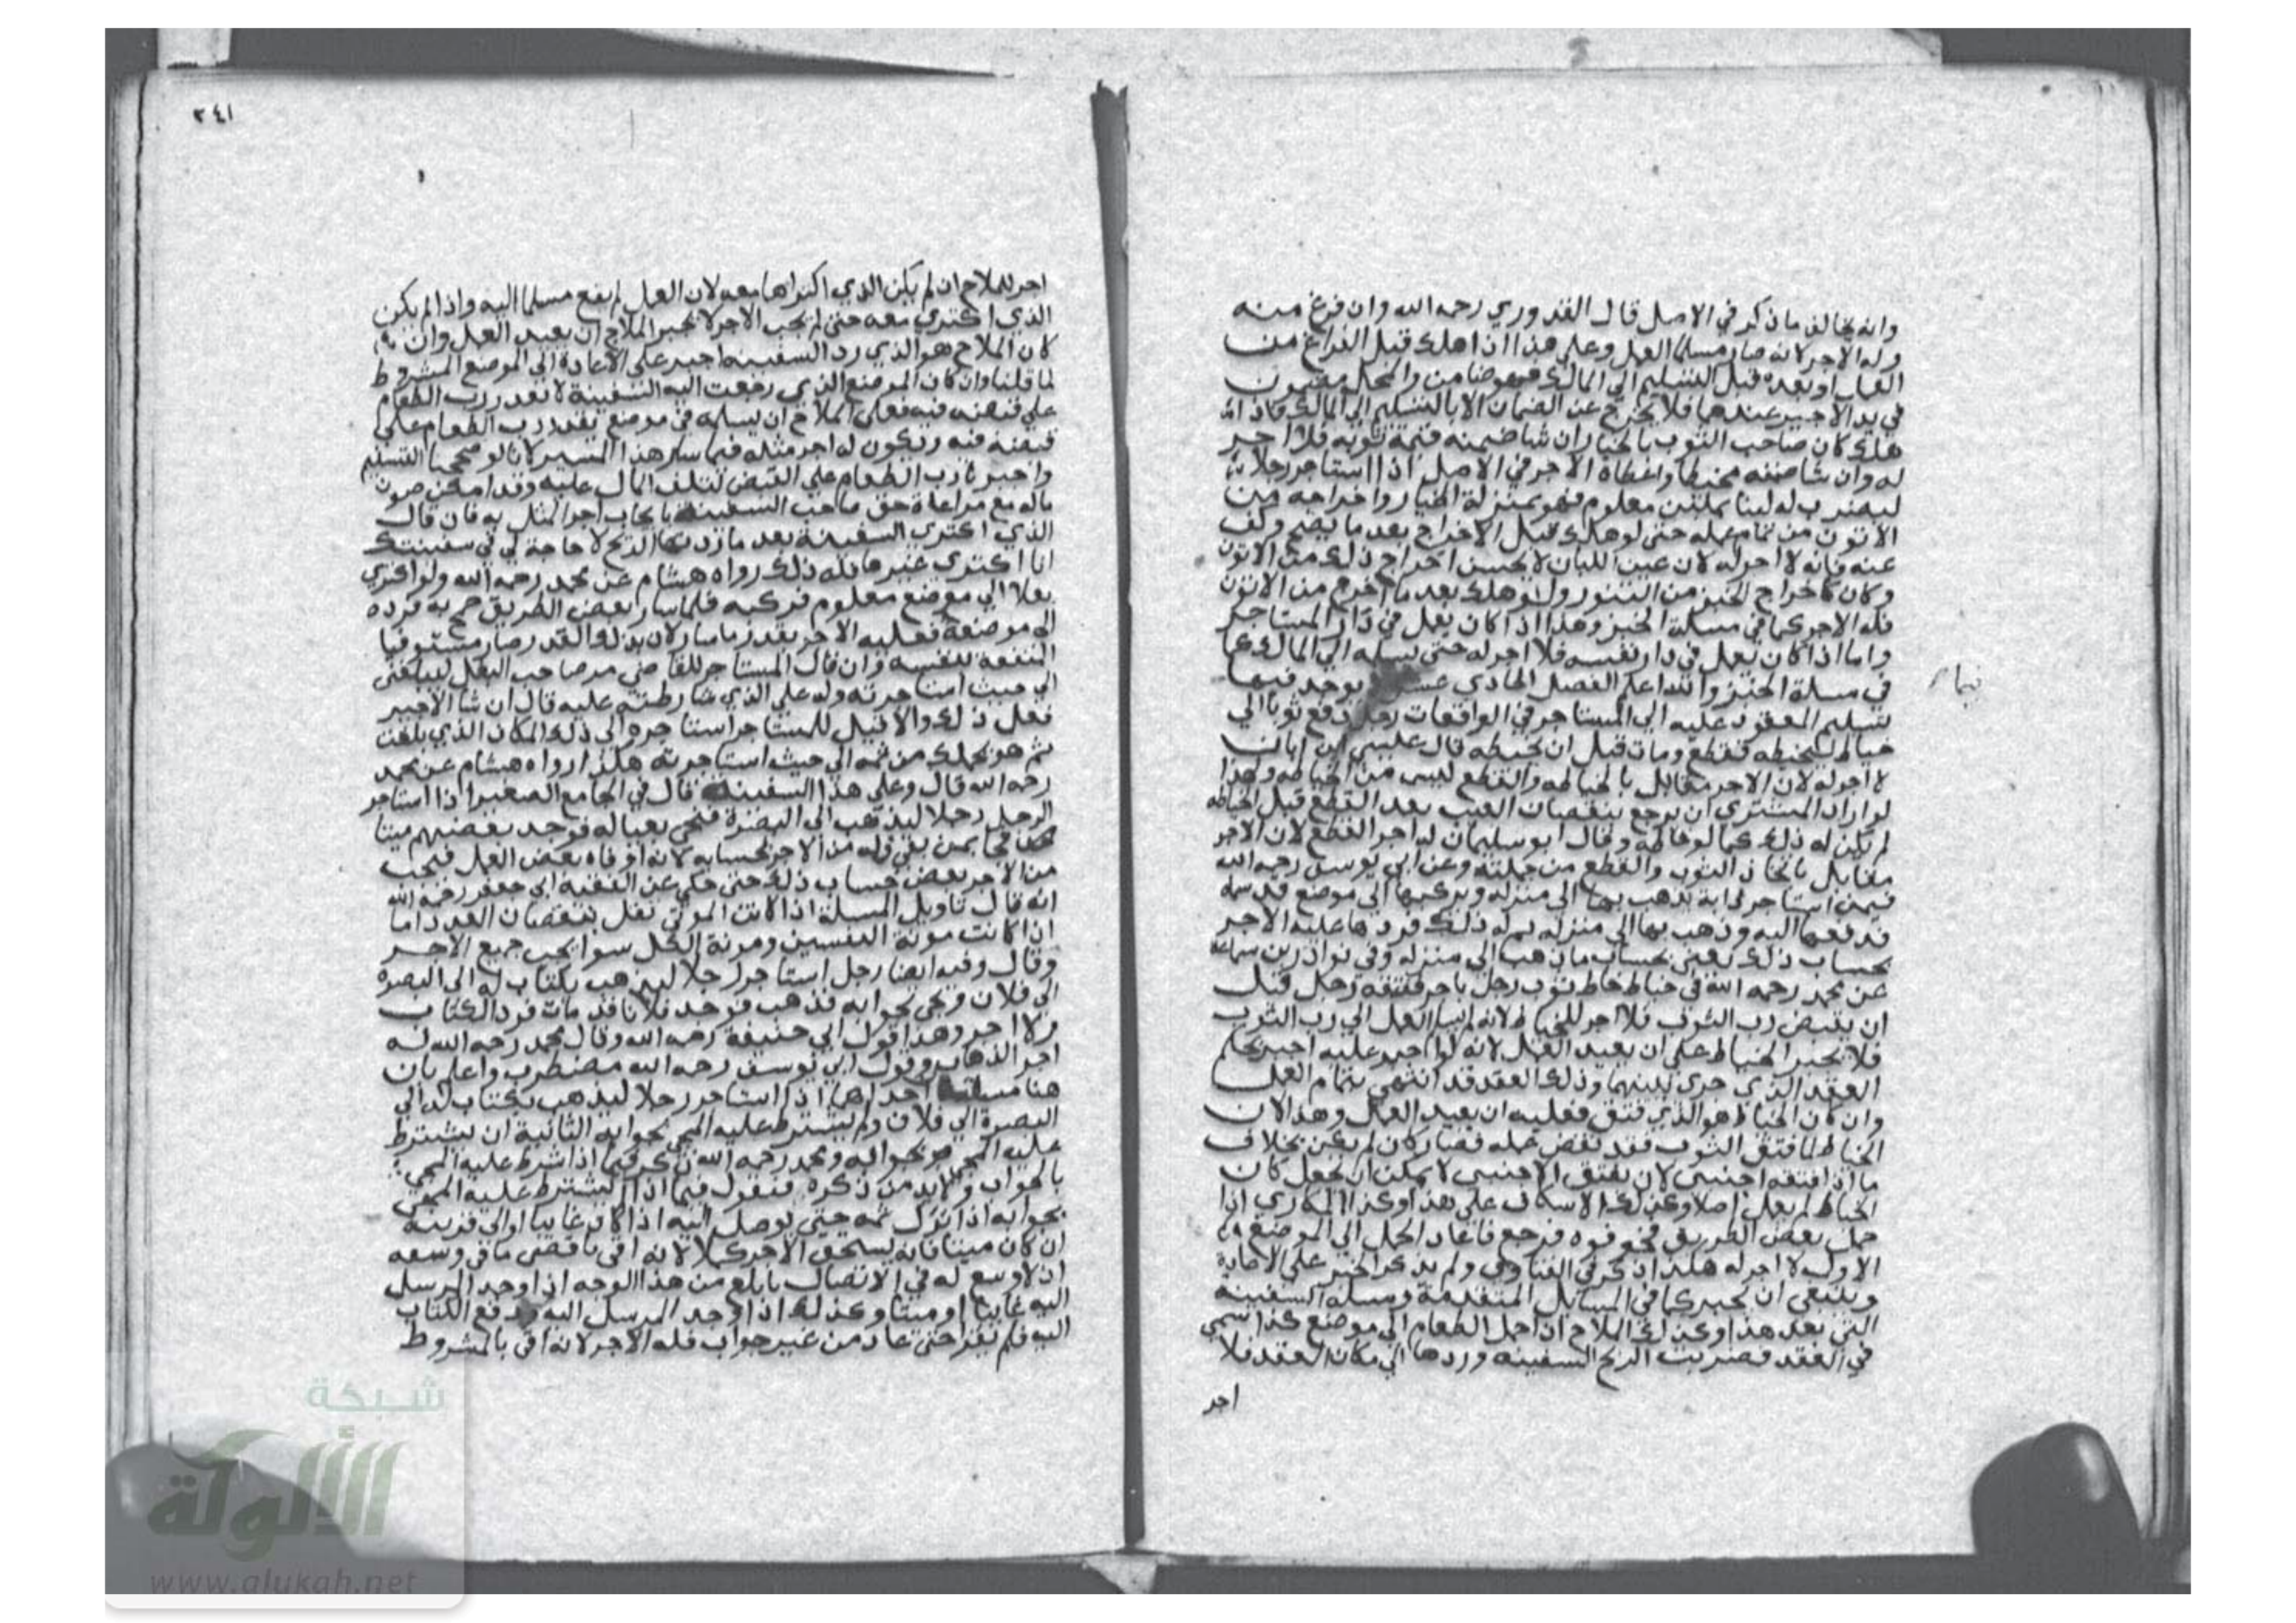 وانه يخالف ما ذكر في الاصل قال القدوري رحمه الله وان فرغ منه
وله الاجر لانه صار مسلما العمل وعلى هذا اذا هلك قبل الفراغ من
العمل او بعده قبل التسليم الى المالك فهو ضامن والمحل مضمون
في يد الاجير عندهما فلا يخرج عن الضمان الا بالتسليم الى المالك فاذا
هلك كان صاحب الثوب بالخيار ان شا ضمنه قيمة ثوبه فلا اجر
له وان شا ضمنه مخيطا واعطاه الاجر في الاصل اذا استاجر رجلا
ليضرب له لبنا بملبن معلوم فهو بمنزلة الخباز واخراجه من
الاتون من تمام عمله حتى لو هلك قبل الاخراج بعد ما نضج وكف
عنه فانه لا اجر له لان عين اللبان لا يحسن اخراج ذلك من الاتون
وكان كاخراج الخبز من التنور ولو هلك بعد ما اخرج من الاتون
فله الاجر كما في مسلة الخبز وهذا اذا كان يعمل في دار المستاجر
واما اذا كان يعمل في دار نفسه فلا اجر له حتى يسلمه الى المالك كما
في مسلة الخبز والله اعلم الفصل الحادي عشر يوجد فيها
تسليم المعقود عليه الى المستاجر في الواقعات رجل دفع ثوبا الى
خياط ليخيطه فقطع ومات قبل ان يخيطه قال عليسي ابن ابان
لا اجر له لان الاجر مقابل بالخياطه والقطع ليس من الخياطه ولهذا
لو اراد المشتري ان يرجع بنقصان العيب بعد القطع قبل الخياطه
لم يكن له ذلك كما لو خاطه وقال ابو سليمان له اجر القطع لان الاجر
مقابل باتخاذ الثوب والقطع من جملته وعن ابي يوسف رحمه الله
فيمن استاجر دابة يذهب بها الى منزله ويركبها الى موضع قد سماه
فدفعها اليه وذهب بها الى منزله ثم بدا له ذلك فردها عليه الاجر
بحساب ذلك يعني بحساب ما ذهب الى منزله وفي نوادر بن سماعه
عن محمد رحمه الله في خياط خاط ثوب رجل باجر ففتقه رجل قبل
ان يقبض رب الثوب فلا اجر للخياط لانه لم يسلم العمل الى رب الثوب
فلا يجبر الخياط على ان يعيد العمل لانه لو اجبر عليه اجبر بحكم
العقد الذي جرى بينهما وذلك العقد قد انتهى بتمام العمل
وان كان الخياط هو الذي فتق فعليه ان يعيد العمل وهذا لان
الخياط لما فتق الثوب فقد نقض عمله فصار كان لم يكن بخلاف
ما اذا فتقه اجنبي لان بفتق الاجنبي لا يمكن ان يجعل كان
الخياط لم يعمل اصلا وكذلك الاسكاف على هذا وكذا المكاري اذا
حمل بعض الطريق فخوفوه فرجع فاعاد الحمل الى الموضع
الاول لا اجر له هكذا ذكر في الفتاوى ولم يذكر الجبر على الاعادة
وينبغي ان يجبر كما في المسايل المتقدمة ومسله السفينه
التي بعد هذا وكذلك الملاح اذا حمل الطعام الى موضع كذا سمي
في العقد فضربت الريح السفينه وردها الى مكان العقد فلا
اجر
٣٤١
اجر للملاح ان لم يكن الذي اكتراها معه لان العمل لم يقع مسلما اليه واذا لم يكن
الذي اكترى معه حتى لم يجب الاجر لا يجبر الملاح ان يعيد العمل وان
كان الملاح هو الذي رد السفينه اجبر على الاعادة الى الموضع المشروط
لما قلنا وان كان الموضع الذي رفعت اليه السفينة لا يقدر رب الطعام
على قبضه فيه فعلى الملاح ان يسلمه في موضع يقدر رب الطعام على
قبضه فيه ويكون له اجر مثله فيما سار هذا المسير لانا لو صححنا التسليم
واجبرنا رب الطعام على القبض لتلف المال عليه وقد امكن صون
ماله مع مراعاة حق صاحب السفينة بايجاب اجر المثل به فان قال
الذي اكترى السفينة بعد ما ردتها الريح لا حاجة لي في سفينتك
انا اكترى غيرها فله ذلك رواه هشام عن محمد رحمه الله ولو اكترى
بغلا الى موضع معلوم فركبه فلما سار بعض الطريق جمح به فرده
الى موضعه فعليه الاجر بقدر ما سار لان بذلك القدر صار مستوفيا
المنفعة لنفسه وان قال المستاجر للقاضي مر صاحب البغل ليبلغني
الى حيث استاجرته وله على الذي شارطته عليه قال ان شا الاجير
فعل ذلك والا قيل للمستاجر استاجره الى ذلك المكان الذي بلغت
ثم هو يحملك من ثمه الى حيث استاجرته هكذا رواه هشام عن محمد
رحمه الله قال وعلى هذا السفينة قال في الجامع الصغير اذا استاجر
الرجل رجلا ليذهب الى البصرة فيجي بعياله فوجد بعضهم ميتا
فجا بمن بقي فله من الاجر بحسابه لانه اوفاه بعض العمل فيجب
من الاجر بعض حساب ذلك حتى حكي عن الفقيه ابي جعفر رحمه الله
انه قال تاويل المسلة اذا كانت المونة تقل بنقصان العدد اما
اذا كانت مونة النفسين ومونة الكل سوا يجب جميع الاجر
وقال وفيه ايضا رجل استاجر رجلا ليذهب بكتاب له الى البصرة
الى فلان ويجي بجوابه فذهب فوجد فلانا قد مات فرد الكتاب
فلا اجر وهذا قول ابي حنيفة رحمه الله وقال محمد رحمه الله له
اجر الذهاب وقول ابي يوسف رحمه الله مضطرب واعلم بان
هنا مسلتا احداهما اذا استاجر رجلا ليذهب بكتاب له الى
البصرة الى فلان ولم يشترط عليه المجي بجوابه الثانية ان يشترط
عليه المجي بجوابه ومحمد رحمه الله ذكر فيما اذا شرط عليه المجي
بالجواب ولا بد من ذكره فنقول فيما اذا لم يشترط عليه المجي
بجوابه اذا ترك ثمه حتى يوصل اليه اذا كان غايبا او الى قريبه
ان كان ميتا فانه يستحق الاجر كملا لانه اتى باقصى ما في وسعه
اذ لا وسع له في الاتصال بابلغ من هذا الوجه اذا وجد المرسل
اليه غايبا او ميتا وكذلك اذا وجد المرسل اليه ودفع الكتاب
اليه فلم يقرا حتى عاد من غير جواب فله الاجر لانه اتى بالمشروط
شبكة
الألوكة
www.alukah.net